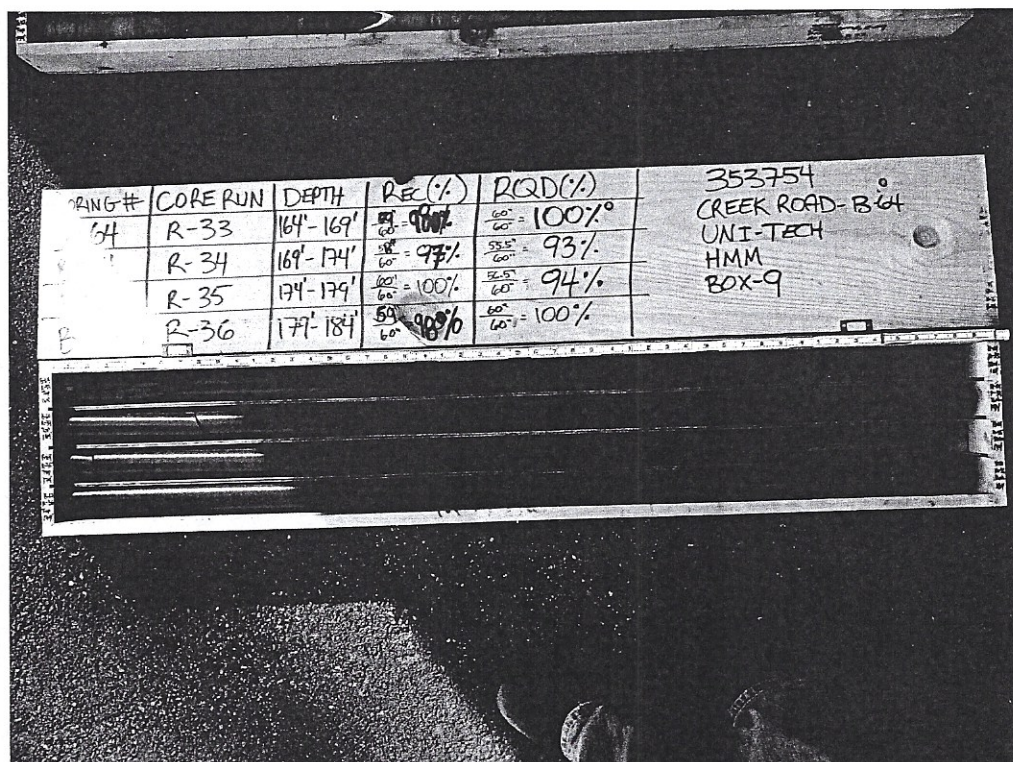 ORING # CORE RUN DEPTH REC (%) RQD (%)
64 R-33 164'-169' 60" = 98% 60"/60" = 100%
R-34 169'-174' 58"/60" = 97% 55.5"/60" = 93%
R-35 174'-179' 60"/60" = 100% 56.5"/60" = 94%
B R-36 179'-184' 59/60" = 98% 60"/60" = 100%
353754
CREEK ROAD-B-64
UNI-TECH
HMM
BOX-9